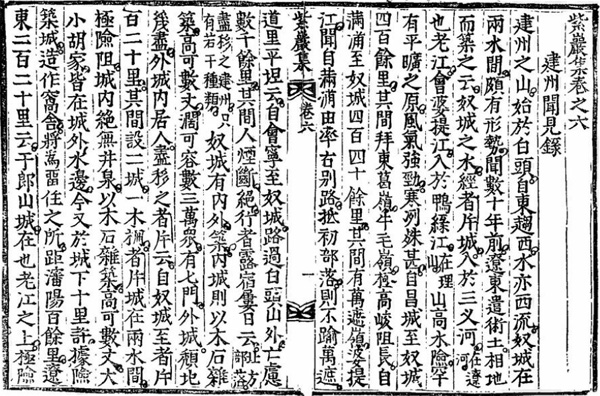 紫巖集卷之六
建州聞見錄
建州之山始於白頭自東趨西水亦西流奴城在
兩水間頗有形勢聞數十年前遼東遣術士相地
而築之云奴城之水經者片城入於三叉河河在遼
也老江會婆提江入於鴨綠江在理山高水險罕
有平曠之原風氣強勁寒冽殊甚自昌城至奴城
四百餘里其間拜東葛嶺牛毛嶺極高峻阻長自
滿浦至奴城四百四十餘里其間有萬遮嶺婆提
江聞自滿浦由率古別路抵初部落則不踰萬遮
紫巖集 卷六 一
道里平坦云自會寧至奴城路過白頭山外亡慮
數千餘里其間人煙斷絕行者露宿屢日云北方部落
盡移之建州有若干種類奴城有內外築內城則以木石雜
築高可數丈濶可容數三萬衆有七門外城頹圮
幾盡外城內居人盡移之者片云自奴城至者片
百二十里其間設二城一木柵者片城在兩水間
極險阻城內絕無井泉以木石雜築高可數丈大
小胡家皆在城外水邊今又於城下十里許據險
築城造作窩舍將爲留住之所距瀋陽百餘里遼
東二百二十里云于郎山城在也老江之上極險